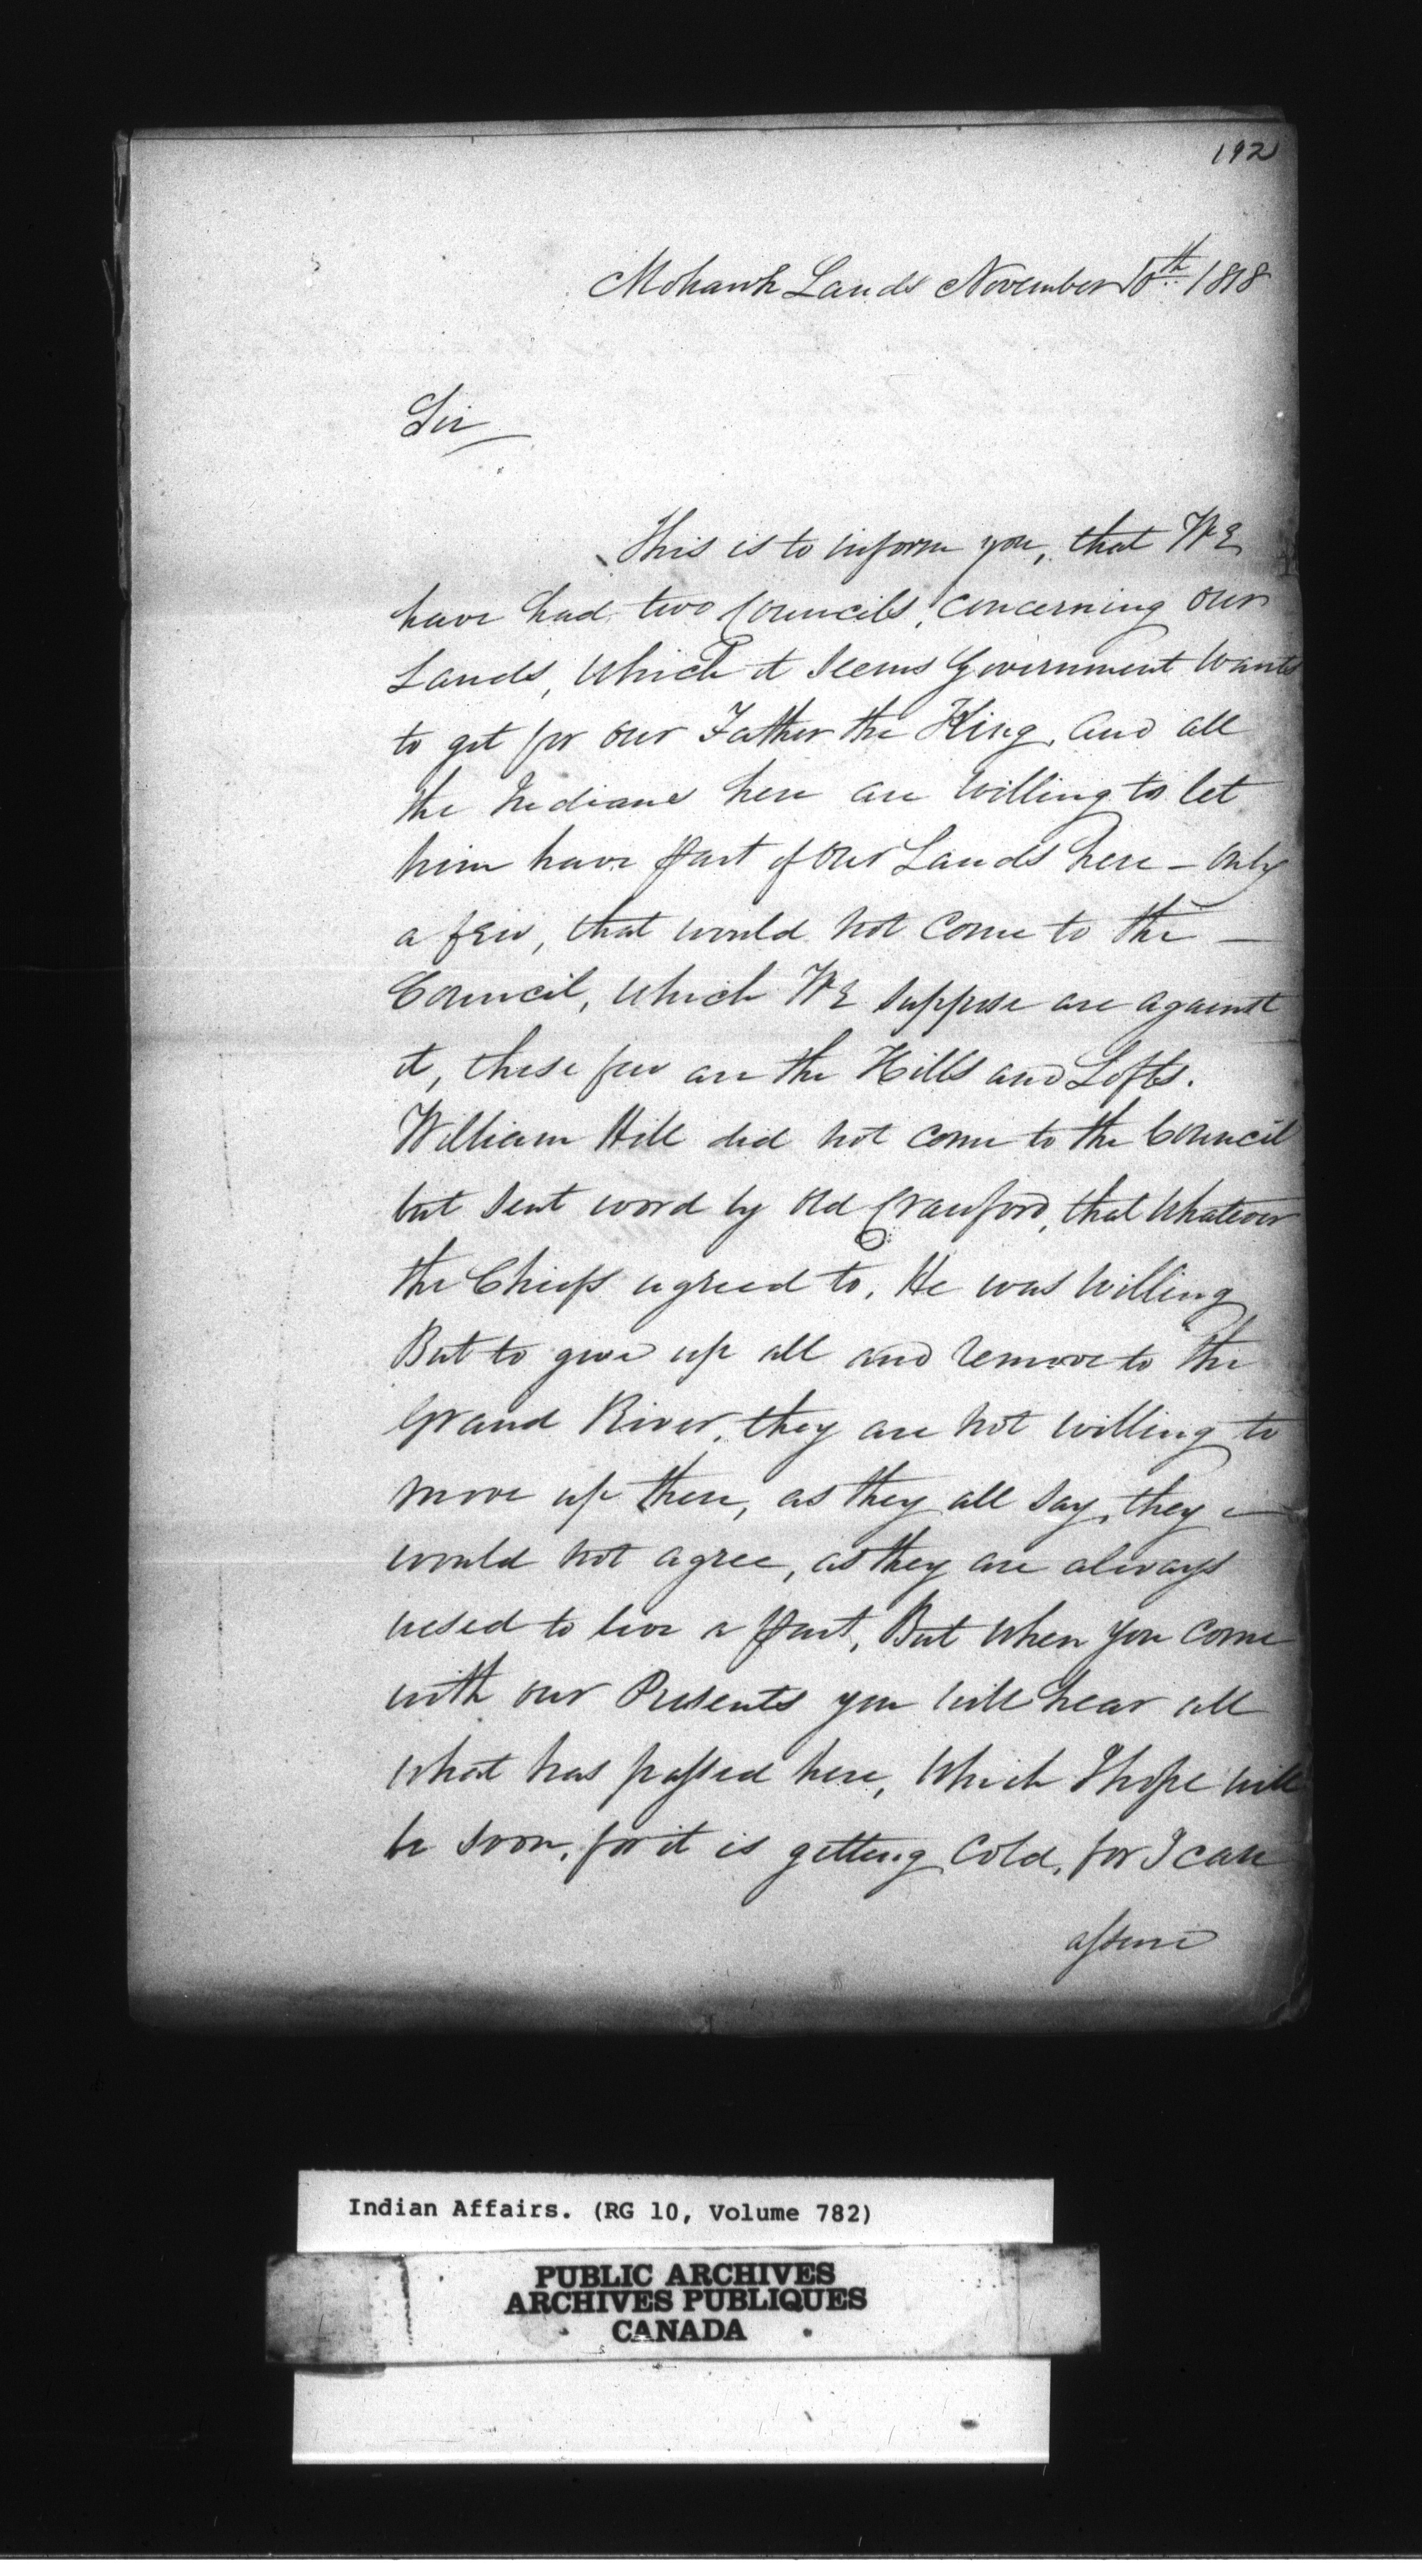 192
Mohawk Lands November 10th 1818
Sir
This is to inform you, that WE
have had two Councils, concerning our
Lands, which it seems Government wants
to get for our Father the King, and all
the Indians here are willing to let
him have part of our Lands here - only
a few, that would not come to the -
Council, which WE suppose are against
it, these few are the Hills and Lofts.
William Hill did not come to the Council
but sent word by old Crawford, that whatever
the Chiefs agreed to, He was willing
But to give up all and remove to the
Grand River, they are not willing to
move up there, as they all say, they -
would not agree, as they are always
used to live a part, But when you come
with our Presents you will hear all
what has passed here, which I hope will
be soon, for it is getting cold, for I can
assure
Indian Affairs. (RG 10, Volume 782)
PUBLIC ARCHIVES
ARCHIVES PUBLIQUES
CANADA